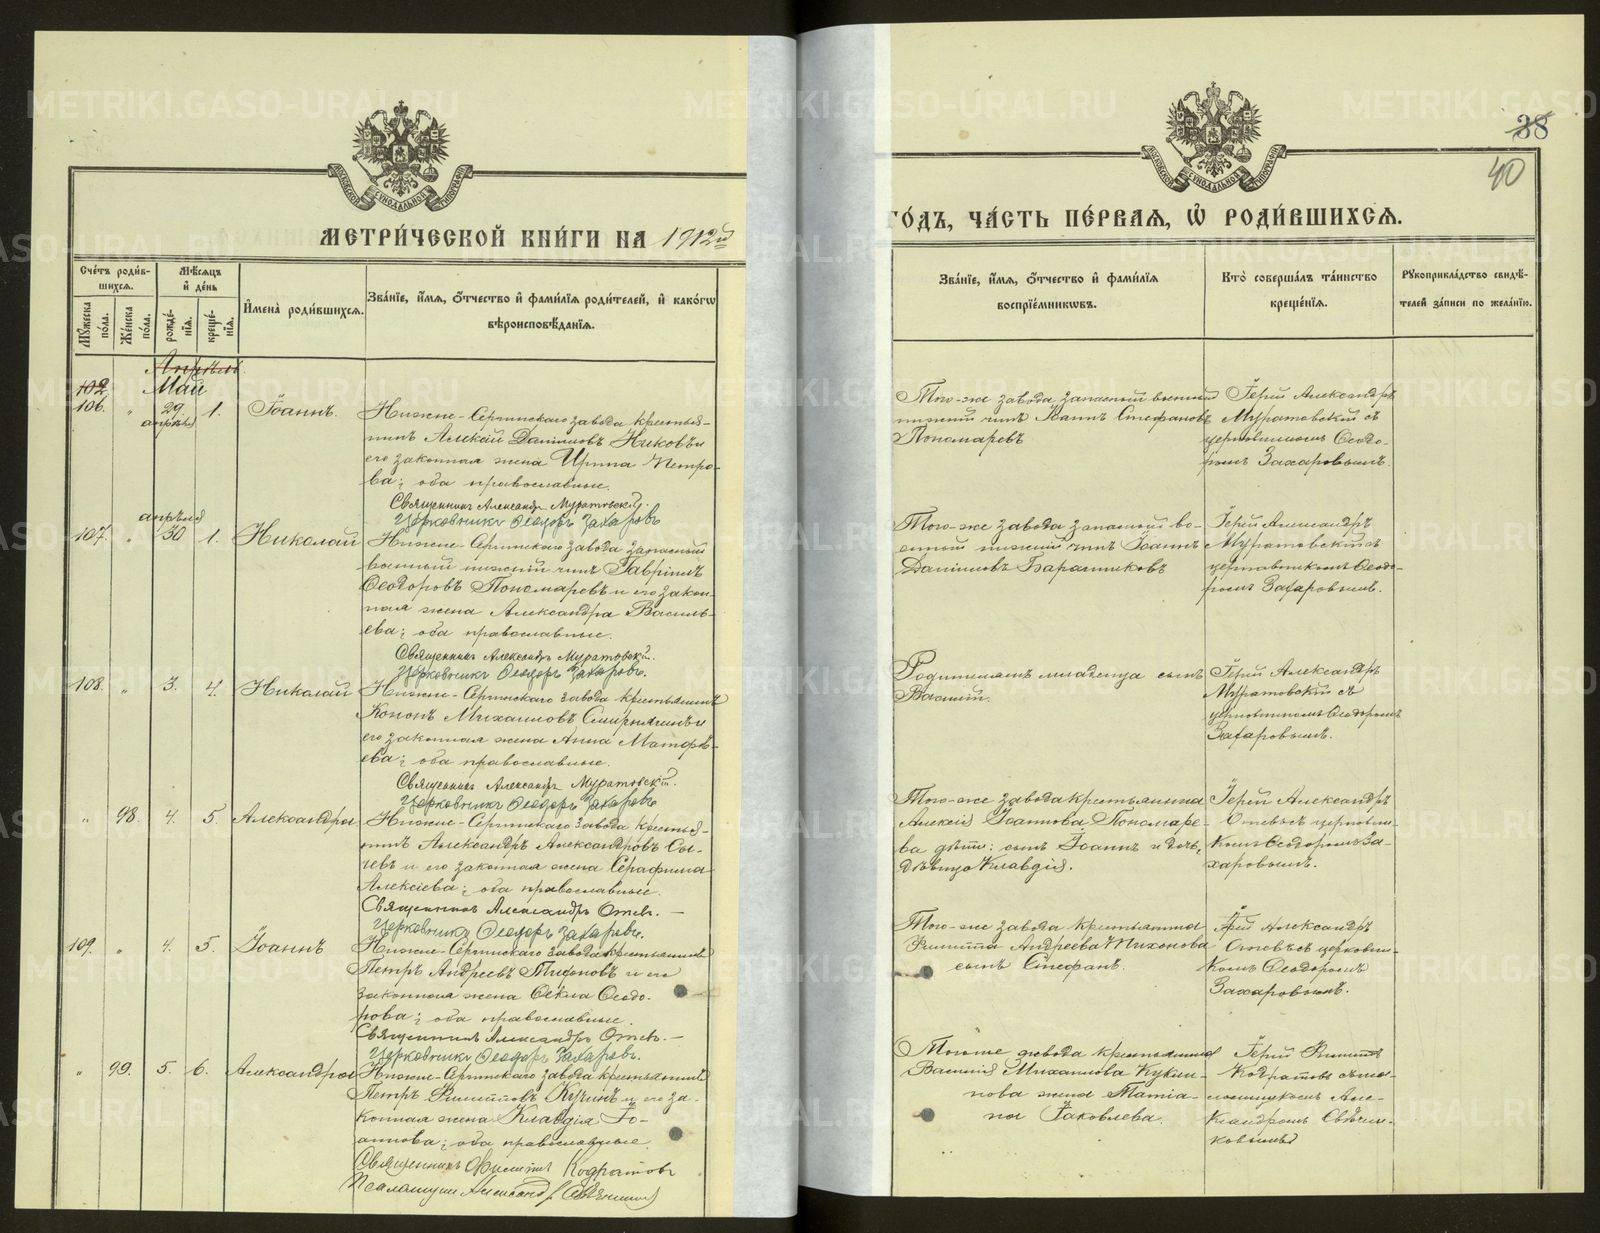 METRIKI.GASO-URAL.RU
38
40
МОСКОВСКОЙ СУНОДАЛЬНОЙ ТИПОГРАФІИ
МЕТРИ́ЧЕСКОЙ КНИ́ГИ НА 1912й
ГО́ДЪ, ЧА́СТЬ ПЕ́РВАѦ, Ѡ҆ РОДИ́ВШИХСѦ.
Сче́тъ роди́вшихсѧ.
Мꙋ́жеска по́ла.
Же́нска по́ла.
Мѣ́сѧцъ и҆ де́нь
рожде́нїѧ.
креще́нїѧ.
И҆мена̀ роди́вшихсѧ.
Зва́нїе, и҆́мѧ, ѻ҆́тчество и҆ фами́лїѧ роди́телей, и҆ како́гѡ
вѣроисповѣ́данїѧ.
Зва́нїе, и҆́мѧ, ѻ҆́тчество и҆ фами́лїѧ
воспрїе́мникѡвъ.
Кто̀ соверша́лъ та́инство
креще́нїѧ.
Рꙋкоприкла́дство свидѣ́-
телей за́писи по жела́нїю.
Апрѣль
102 Май
106. " 29. апрѣля 1. Іоаннъ.
Нижне-Сергинскаго завода крестья-
нинъ Алексій Даніиловъ Никовъ и
его законная жена Ирина Петро-
ва; оба православные.
Священникъ Александръ Муратовскій.
Церковникъ Ѳеодоръ Захаровъ
Того-же завода запасный военный
нижній чинъ Іоаннъ Стефановъ
Пономаревъ
Іерей Александръ
Муратовскій съ
церковникомъ Ѳеодо-
ромъ Захаровымъ.
107. " апрѣля 30 1. Николай
Нижне-Сергинскаго завода запасный
военный нижній чинъ Гавріилъ
Ѳеодоровъ Пономаревъ и его закон-
ная жена Александра Василь-
ева; оба православные.
Священникъ Александръ Муратовскій.
Церковникъ Ѳеодоръ Захаровъ.
Того-же завода запасный во-
енный нижній чинъ Іоаннъ
Даніиловъ Баранниковъ
Іерей Александръ
Муратовскій съ
церковникомъ Ѳеодо-
ромъ Захаровымъ.
108. " 3. 4. Николай
Нижне-Сергинскаго завода крестьянинъ
Кононъ Михаиловъ Смирнягинъ и
его законная жена Анна Матѳѣ-
ева; оба православные.
Священникъ Александръ Муратовскій.
Церковникъ Ѳеодоръ Захаровъ
Родителямъ младенца сынъ
Василій.
Іерей Александръ
Муратовскій съ
церковникомъ Ѳеодоромъ
Захаровымъ.
" 98. 4. 5. Александра
Нижне-Сергинскаго завода крестья-
нинъ Александръ Александровъ Сы-
чевъ и его законная жена Серафима
Алексіева; оба православные.
Священникъ Александръ Отевъ.
Церковникъ Ѳеодоръ Захаровъ.
Того-же завода крестьянина
Алексія Іоаннова Пономаре-
ва дѣти: сынъ Іоаннъ и дочь,
дѣвица Клавдія.
Іерей Александръ
Отевъ съ церковни-
комъ Ѳеодоромъ За-
харовымъ.
109. " 4. 5. Іоаннъ
Нижне-Сергинскаго завода крестьянинъ
Петръ Андреевъ Тихоновъ и его
законная жена Ѳекла Ѳеодо-
рова; оба православные.
Священникъ Александръ Отевъ.
Церковникъ Ѳеодоръ Захаровъ.
Того-же завода крестьянина
Филиппа Андреева Тихонова
сынъ Стефанъ.
Іерей Александръ
Отевъ съ церковни-
комъ Ѳеодоромъ
Захаровымъ.
" 99. 5. 6. Александра
Нижне-Сергинскаго завода крестьянинъ
Петръ Филипповъ Кукинъ и его за-
конная жена Клавдія Іо-
аннова; оба православные
Священникъ Филиппъ Кодратовъ
Псаломщикъ Александръ Свѣчниковъ
Тогоже завода крестьянина
Василія Михаилова Куклинова
жена Татіа-
на Іаковлева.
Іерей Филиппъ
Кодратовъ съ пса-
ломщикомъ Але-
ксандромъ Свѣчни-
ковымъ